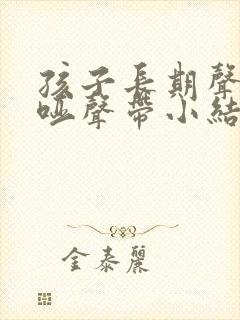 孩子長期聲
啞聲帶小結
金泰麗